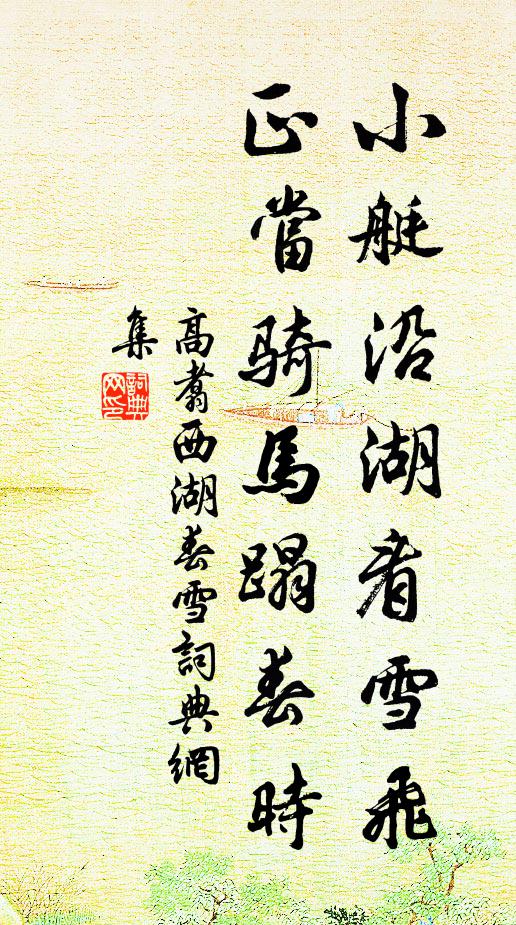 小艇沿湖看雪飛
正當騎馬蹋春時
高翥西湖春雪詞典網
集
詞典
网印